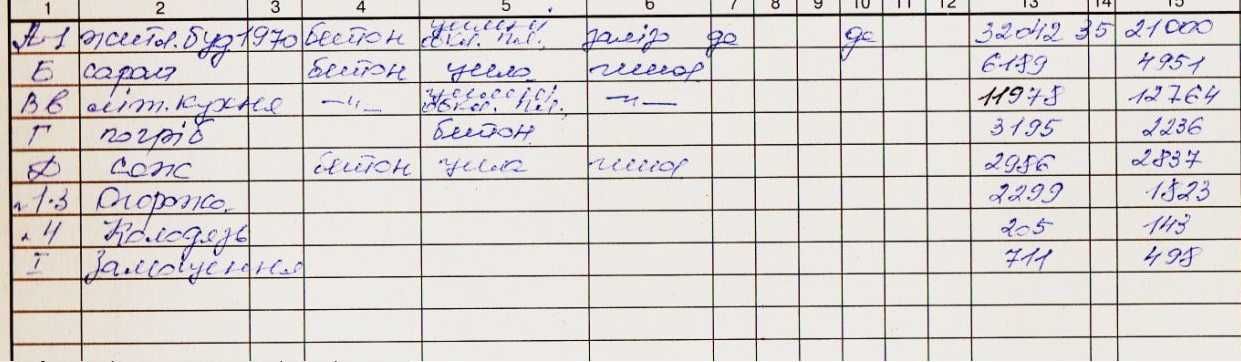 1 2 3 4 5 6 7 8 9 10 11 12 13 14 15
А-1 житл. буд 1970 бетон цегла обкл. пл. залізо да да 32042 35 21000
Б сарай бетон цегла шифер 6189 4951
Вв літ. кухня —"— обкл. пл., —"— 11978 12764
Г погріб бетон 3195 2236
Д саж бетон цегла шифер 2986 2837
1-3 Огорожа 2299 1823
4 Колодязь 205 143
I Замощення 711 498